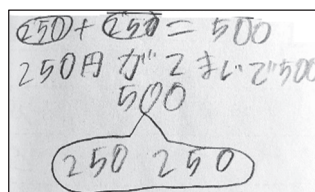 250+250=500
250円が2まいで500
500
250 250